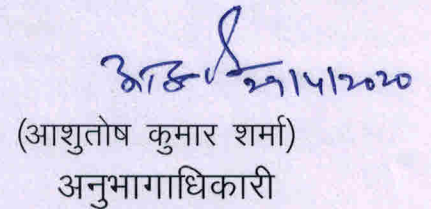 29/4/2020
(आशुतोष कुमार शर्मा)
अनुभागाधिकारी